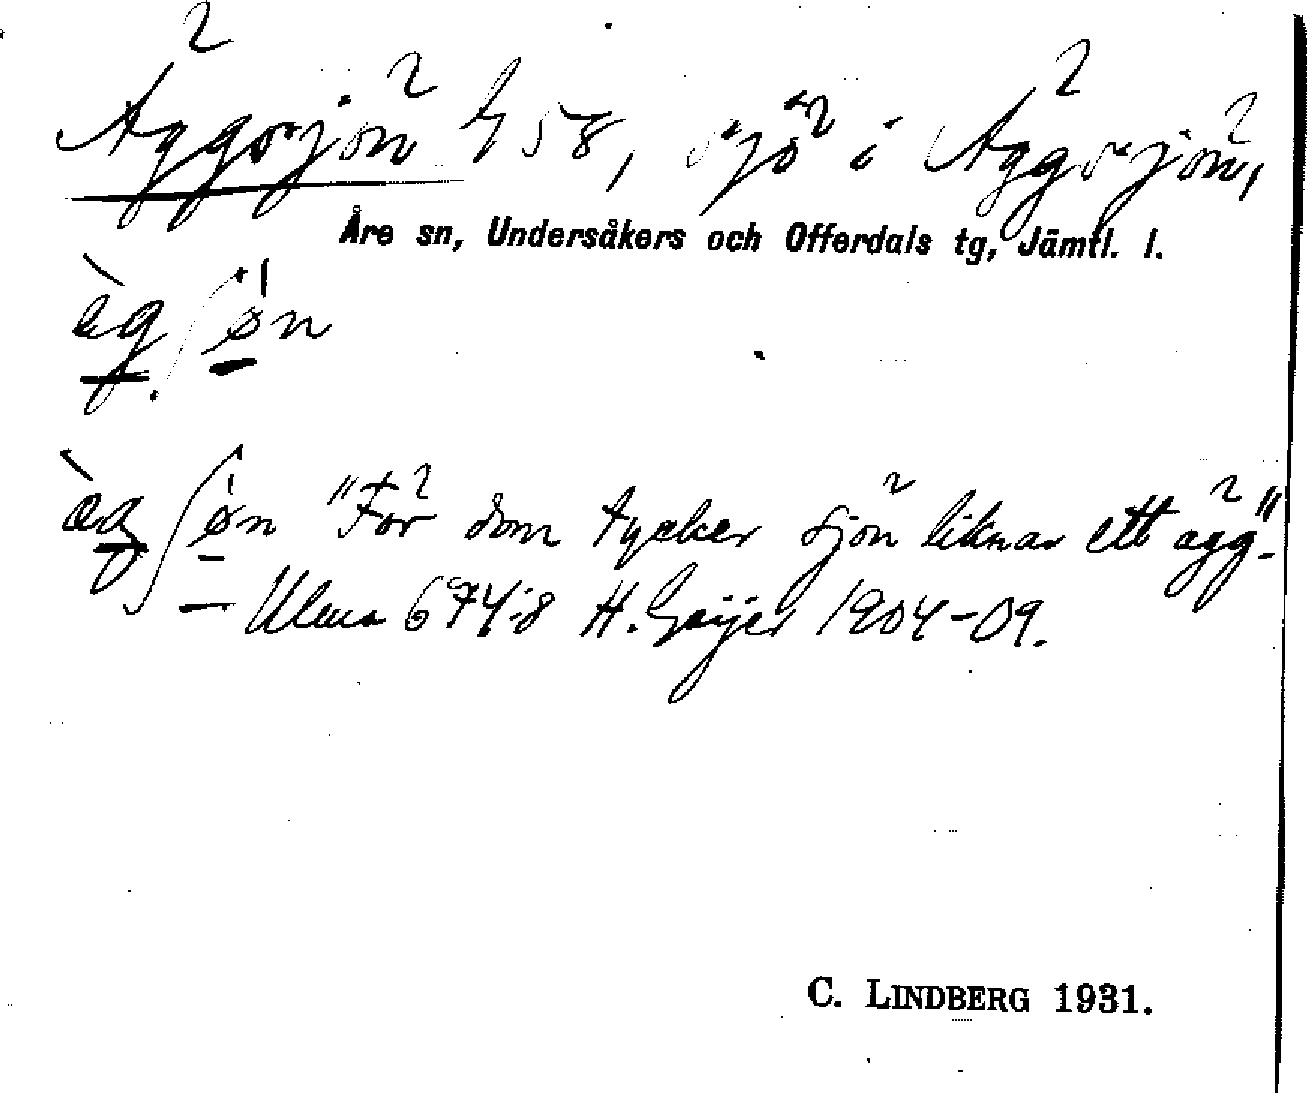 Äggsjön G 58, sjö i Äggsjön,
Åre sn, Undersåkers och Offerdals tg, Jämtl. l.
èg ʃøn
æ̀g ʃøn "För dom tycker sjön liknar ett ägg".
— Ulma 674:8 H. Geijer 1904-09.
C. LINDBERG 1931.